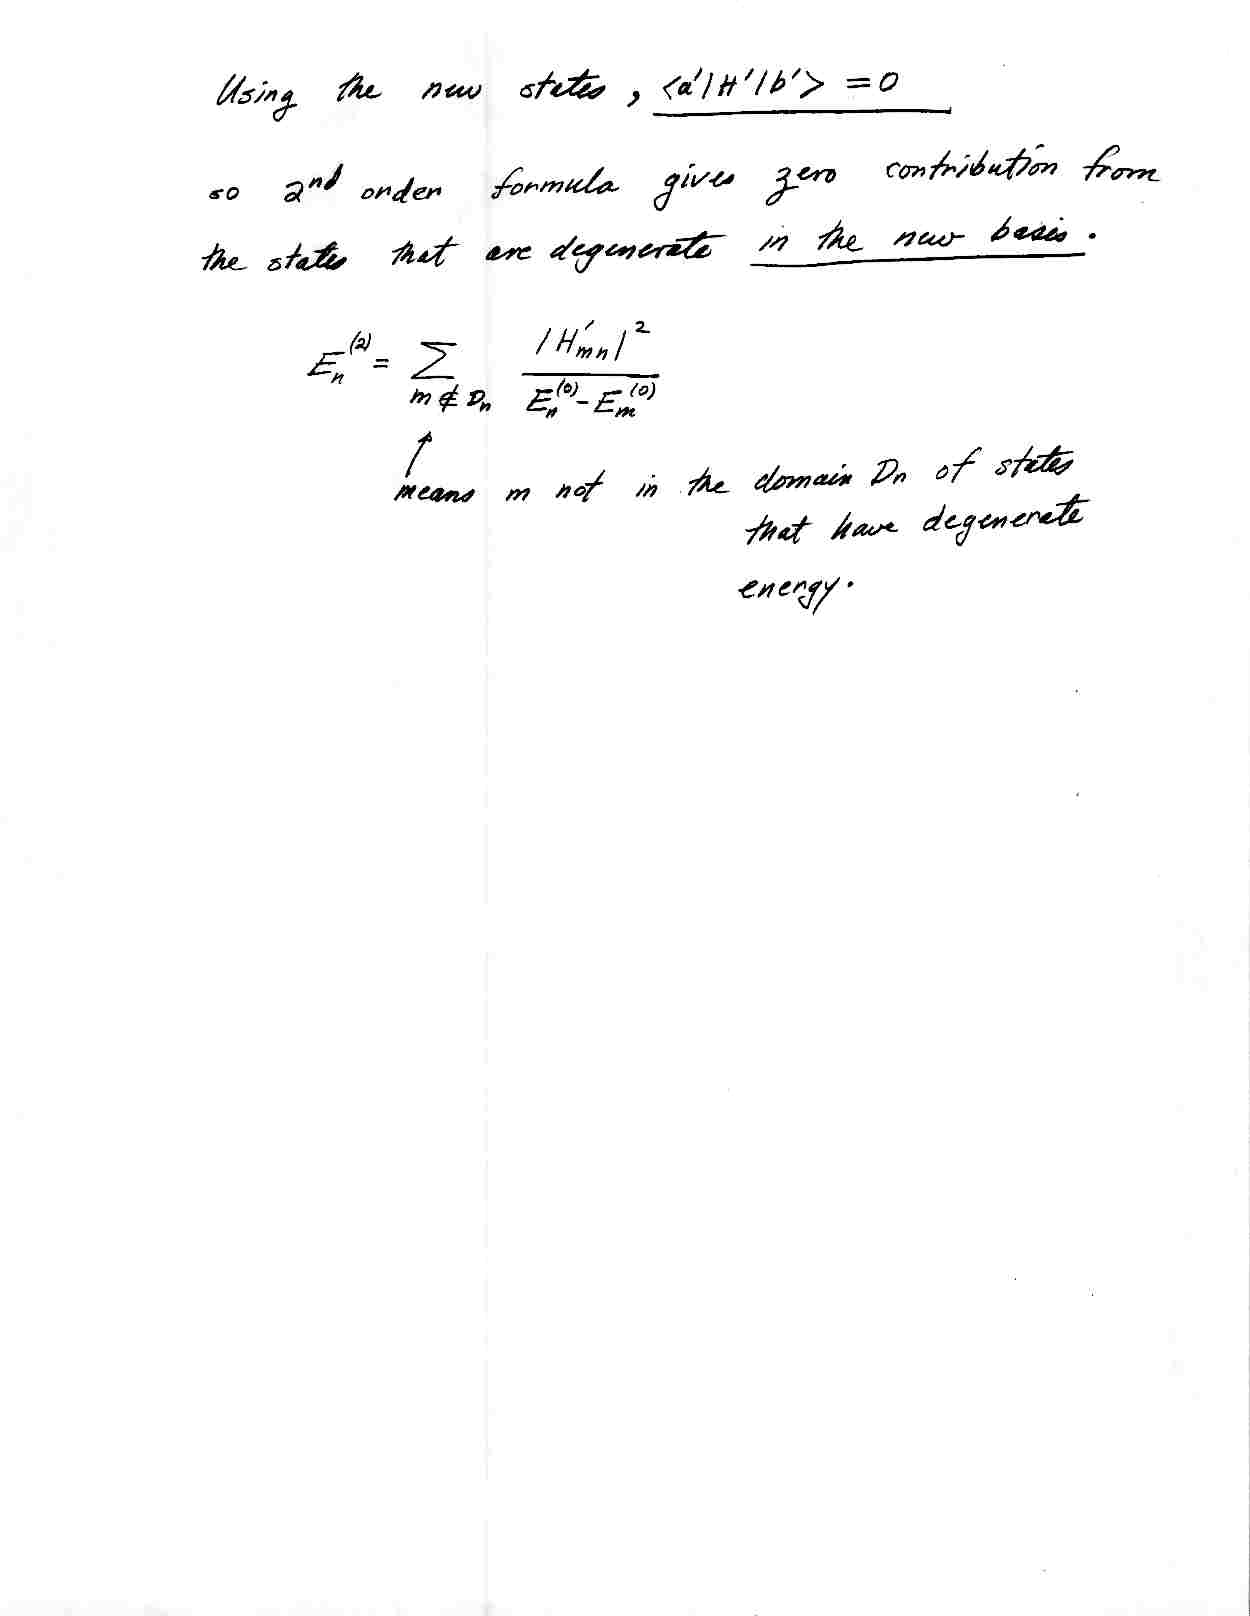 Using the new states, <a'|H'|b'> = 0
so 2nd order formula gives zero contribution from
the states that are degenerate in the new basis.
E_n^(2) = Σ_{m ∉ D_n} |H'_mn|^2 / (E_n^(0) - E_m^(0))
↑
means m not in the domain D_n of states
that have degenerate
energy.